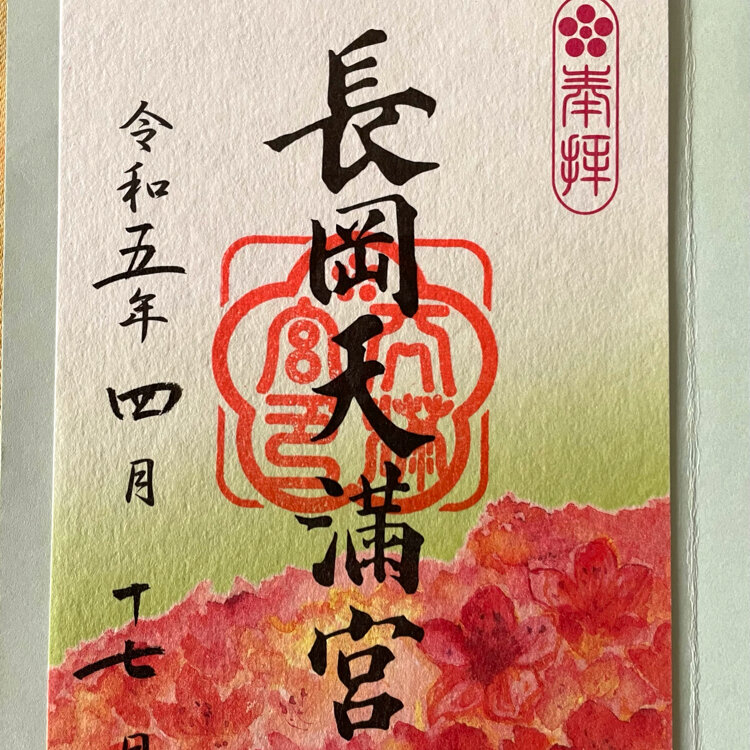 奉拝
長岡天満宮
令和五年四月十七日